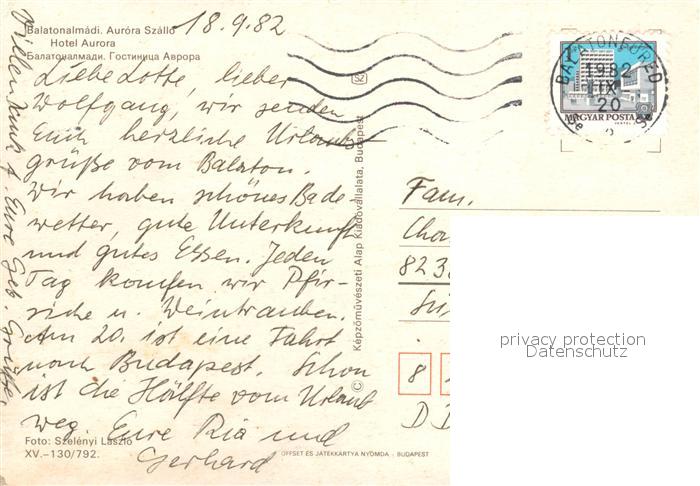 Balatonalmádi. Auróra Szálló
Hotel Aurora
Балатоналмади. Гостиница Аврора
18.9.82
Liebe Lotte, lieber
Wolfgang, wir senden
Euch herzliche Urlaubs-
grüße vom Balaton.
Wir haben schönes Bade-
wetter, gute Unterkunft
und gutes Essen. Jeden
Tag kaufen wir Pfir-
siche u. Weintrauben.
Am 20. ist eine Fahrt
nach Budapest. Schon
ist die Hälfte vom Urlaub
weg. Eure Ria und
Gerhard
Vielen Dank f. Eure Geb. Grüße
Foto: Szelényi László
XV.–130/792.
OFFSET ÉS JÁTÉKKÁRTYA NYOMDA - BUDAPEST
© Képzőművészeti Alap Kiadóvállalata, Budapest
SZ
BALATONFÜRED
1982
IX
20
MAGYAR POSTA
Fam.
823
8
D D
privacy protection
Datenschutz